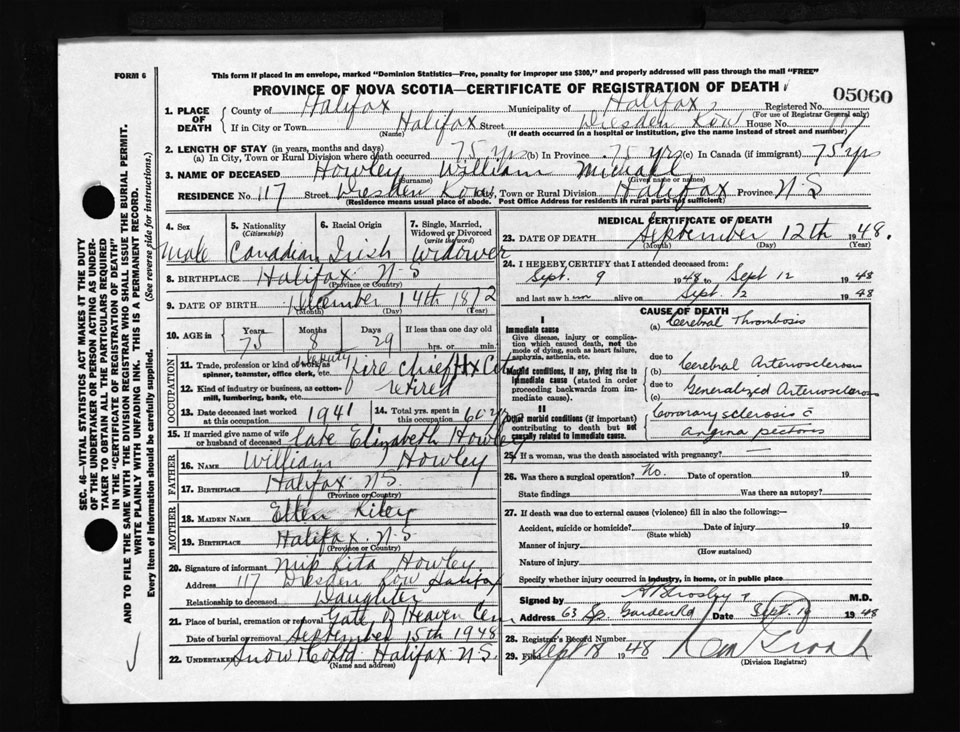 FORM 6
This form if placed in an envelope, marked "Dominion Statistics—Free, penalty for improper use $300," and properly addressed will pass through the mail "FREE"
PROVINCE OF NOVA SCOTIA—CERTIFICATE OF REGISTRATION OF DEATH
05060
1. PLACE OF DEATH
County of Halifax Municipality of Halifax Registered No.
(For use of Registrar General only)
If in City or Town Halifax Street Dresden Row House No. 117
(Name) (If death occurred in a hospital or institution, give the name instead of street and number)
2. LENGTH OF STAY (in years, months and days)
(a) In City, Town or Rural Division where death occurred 75 yrs (b) In Province 75 yrs (c) In Canada (if immigrant) 75 yrs
3. NAME OF DECEASED Howley William Michael
(Surname) (Given name or names)
RESIDENCE No. 117 Street Dresden Row City, Town or Rural Division Halifax Province N.S
(Residence means usual place of abode. Post Office Address for residents in rural parts not sufficient)
4. Sex
Male
5. Nationality
(Citizenship)
Canadian
6. Racial Origin
Irish
7. Single, Married, Widowed or Divorced
(write the word)
Widower
8. BIRTHPLACE Halifax N.S
(Province or Country)
9. DATE OF BIRTH December 14th 1872
(Month) (Day) (Year)
10. AGE in
Years Months Days If less than one day old
75 8 29 hrs. or min.
OCCUPATION
11. Trade, profession or kind of work as spinner, teamster, office clerk, etc. Deputy fire chief Hx City
12. Kind of industry or business, as cotton-mill, lumbering, bank, etc. retired
13. Date deceased last worked at this occupation 1941
14. Total yrs. spent in this occupation 60 yrs
15. If married give name of wife or husband of deceased late Elizabeth Howley
FATHER
16. NAME William Howley
17. BIRTHPLACE Halifax N.S.
(Province or Country)
MOTHER
18. MAIDEN NAME Ellen Riley
19. BIRTHPLACE Halifax. N.S
(Province or Country)
20. Signature of informant Rita Howley
Address 117 Dresden Row Halifax
Relationship to deceased Daughter
21. Place of burial, cremation or removal Gate of Heaven Cem
Date of burial or removal September 15th 1948
22. UNDERTAKER Snow & Co Ltd Halifax N.S.
(Name and address)
MEDICAL CERTIFICATE OF DEATH
23. DATE OF DEATH September 12th 1948.
(Month) (Day) (Year)
24. I HEREBY CERTIFY that I attended deceased from:
Sept. 9 1948 to Sept 12 1948
and last saw him alive on Sept. 12 1948
CAUSE OF DEATH
I
Immediate cause
Give disease, injury or complication which caused death, not the mode of dying, such as heart failure, asphyxia, asthenia, etc.
(a) Cerebral Thrombosis
due to
Morbid conditions, if any, giving rise to immediate cause (stated in order proceeding backwards from immediate cause).
(b) Cerebral Arteriosclerosis
due to
(c) Generalized Arteriosclerosis
II
Other morbid conditions (if important) contributing to death but not causally related to immediate cause.
Coronary sclerosis c̄
Angina pectoris
25. If a woman, was the death associated with pregnancy? —
26. Was there a surgical operation? No. Date of operation 19
State findings Was there an autopsy?
27. If death was due to external causes (violence) fill in also the following:—
Accident, suicide or homicide? Date of injury 19
(State which)
Manner of injury
(How sustained)
Nature of injury
Specify whether injury occurred in industry, in home, or in public place
Signed by M.D.
Address 63 Garden Rd Date Sept. 1948
28. Registrar's Record Number
29. Filed Sept 18 1948
(Division Registrar)
SEC. 46—VITAL STATISTICS ACT MAKES IT THE DUTY
OF THE UNDERTAKER OR PERSON ACTING AS UNDER-
TAKER TO OBTAIN ALL THE PARTICULARS REQUIRED
IN THE "CERTIFICATE OF REGISTRATION OF DEATH"
AND TO FILE THE SAME WITH THE DIVISION REGISTRAR WHO SHALL ISSUE THE BURIAL PERMIT.
WRITE PLAINLY WITH UNFADING INK. THIS IS A PERMANENT RECORD.
Every item of information should be carefully supplied. (See reverse side for instructions.)